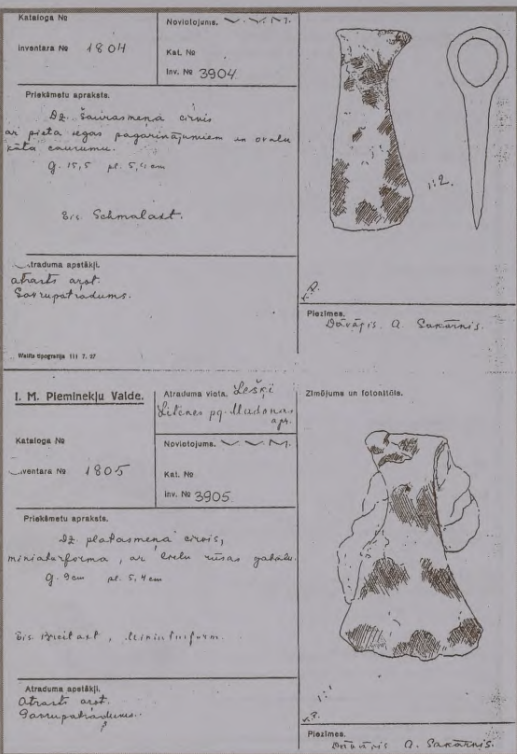 Kataloga №
Inventara № 1804
Novietojums. V. V. M.
Kat. №
Inv. № 3904
Priekšmetu apraksts.
Dz. šaurasmeņa cirvis
ar pieta pagarinājumiem un ovālu
kāta caurumu.
g. 15,5 pl. 5,4 cm
Eis. Schmalaxt.
1:2.
Atraduma apstākļi.
atrasts arot.
Savrupatradums.
Piezīmes.
Dāvājis A. Sakārnis.
Valda tipografija III 7. 27
I. M. Pieminekļu Valde.
Atraduma vieta. Lešķi
Litenes pg. Madonas
apr.
Zīmējums un fotonitōle.
Kataloga №
Inventara № 1805
Novietojums. V. V. M.
Kat. №
Inv. № 3905
Priekšmetu apraksts.
Dz. platasmeņa cirvis,
miniaturforma, ar lielu rūsas gabalu.
g. 9 cm pl. 5,4 cm
Eis. Breitaxt, Miniaturform.
1:1
Atraduma apstākļi.
Atrasts arot.
Savrupatradums.
Piezīmes.
Dāvājis A. Sakārnis.